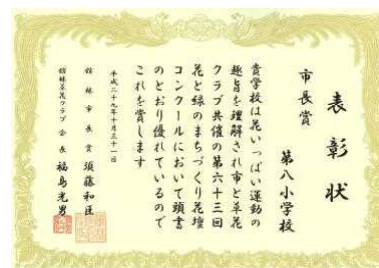 表彰状
市長賞
第八小学校
貴学校は花いっぱい運動の
趣旨を理解され市と草花
クラブ共催の第六十三回
花と緑のまちづくり花壇
コンクールにおいて頭書
のとおり優れているので
これを賞します
平成二十九年十月三十一日
館林市長 須藤和臣
館林草花クラブ会長 福島光男